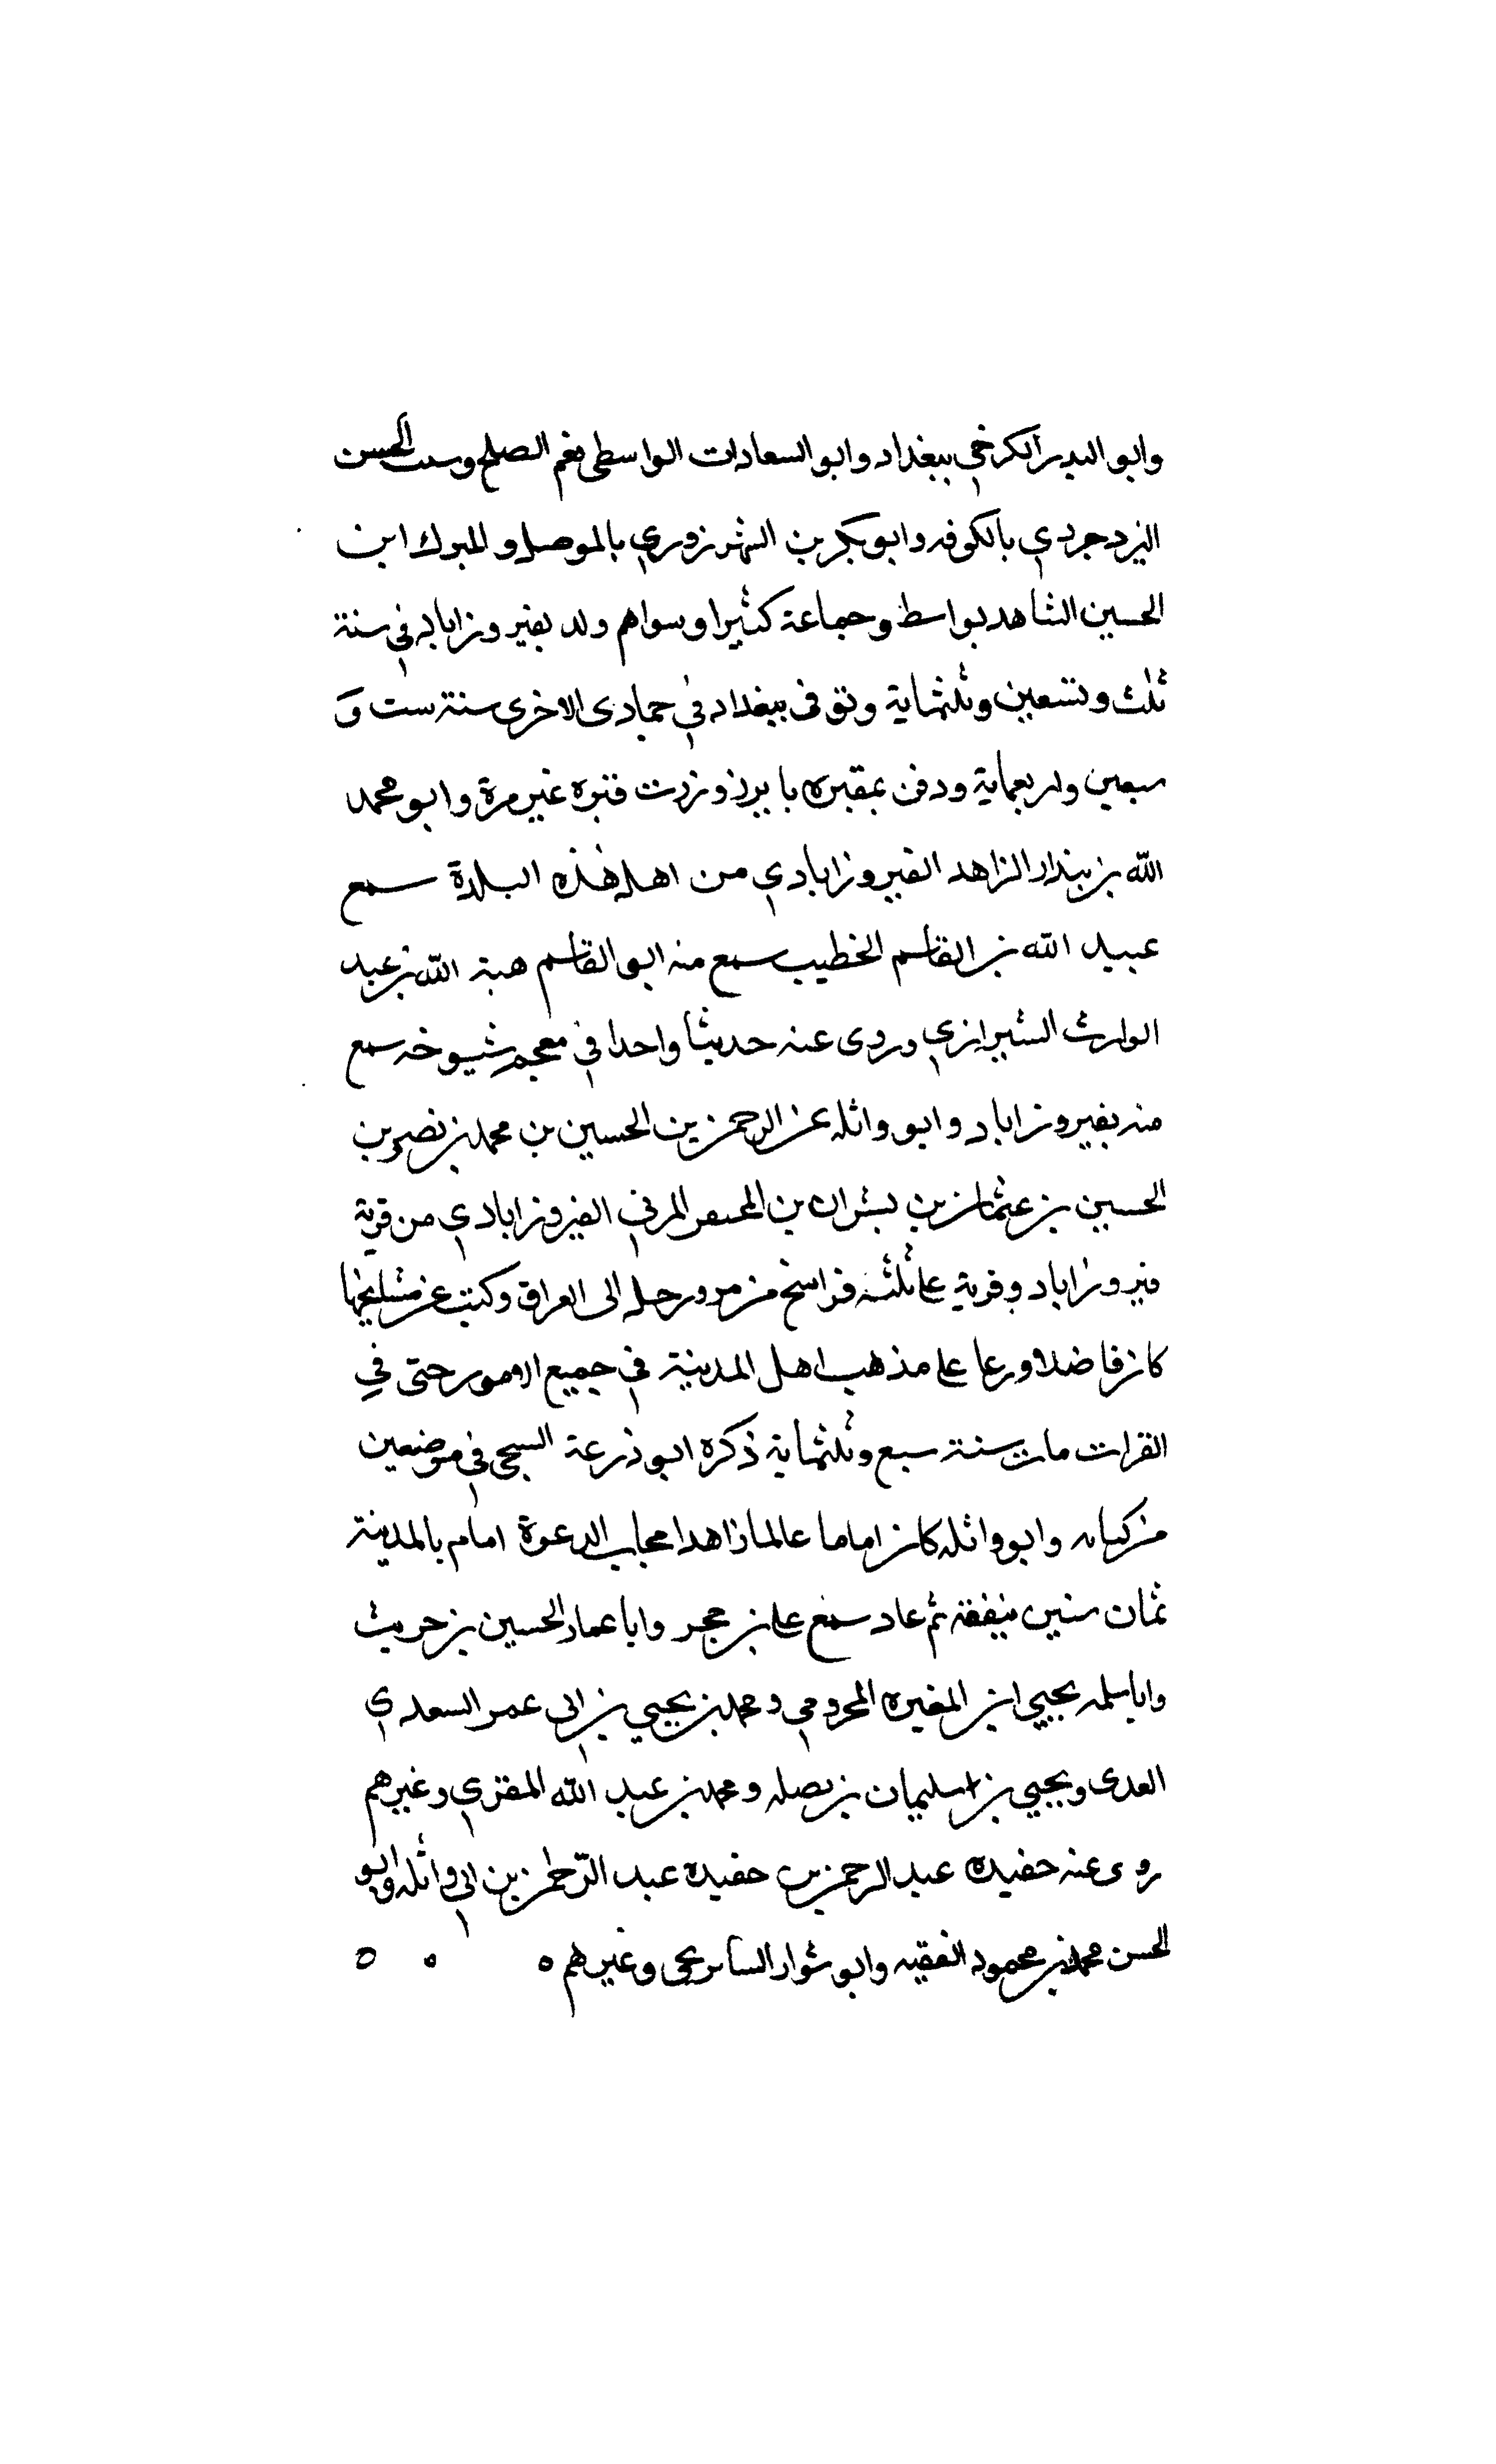 وابو البدر الكرخي ببغداد وابو السعادات الواسطي بفم الصلح وست الحسن
اليزدجردي بالكوفه وابو بكر بن الشهرزوري بالموصل والمبرك ابن
الحسين الشاهد بواسط وجماعة كثيرا وسواهم ولد بفيروزاباد في سنة
ثلث وتسعين وثلثماية وتوفى ببغداد في جمادى الاخرى سنة ست و
سبعين واربعماية ودفن بمقبره با برز وزرت قبره غير مرة وابو محمد
الله بن بندار الزاهد الفيروزابادي من اهل هذه البلدة سمع
عبيد الله بن القاسم الخطيب سمع منه ابو القاسم هبة الله بن عبد
الوارث الشيرازي وروى عنه حديثا واحدا في معجم شيوخه سمع
منه بفيروزاباد وابو واثله عن الرحمن بن الحسين بن محمد بن نصر بن
الحسين بن عثمان بن بشران بن المزني الفيروزابادي من قرية
فيروزاباد وقرية على ثلثة فراسخ من مرو رحل الى العراق وكتب عن مشايخها
كان فاضلا ورعا على مذهب اهل المدينة في جميع الامور حتى في
القرات مات سنة سبع وثلثماية ذكره ابو ذرعة السبحي في موضعين
من كتابه وابو واثله كان اماما عالما زاهدا مجاب الدعوة امام بالمدينة
ثمان سنين يتفقه ثم عاد سمع على بن حجر وابا عمار الحسين بن حريث
وابا سلمه يحيي ابن المغيره المخرومي ومحمد بن يحيي بن ابي عمر السعدي
العدى ويحيي بن سليمان بن نصله ومحمد بن عبد الله المقري وغيرهم
روى عنه حفيده عبد الرحمن بن حفيده عبد الرحمن بن ابي واثله وابو
الحسن محمد بن محمود الفقيه وابو سوار السابرىحى وغيرهم ه